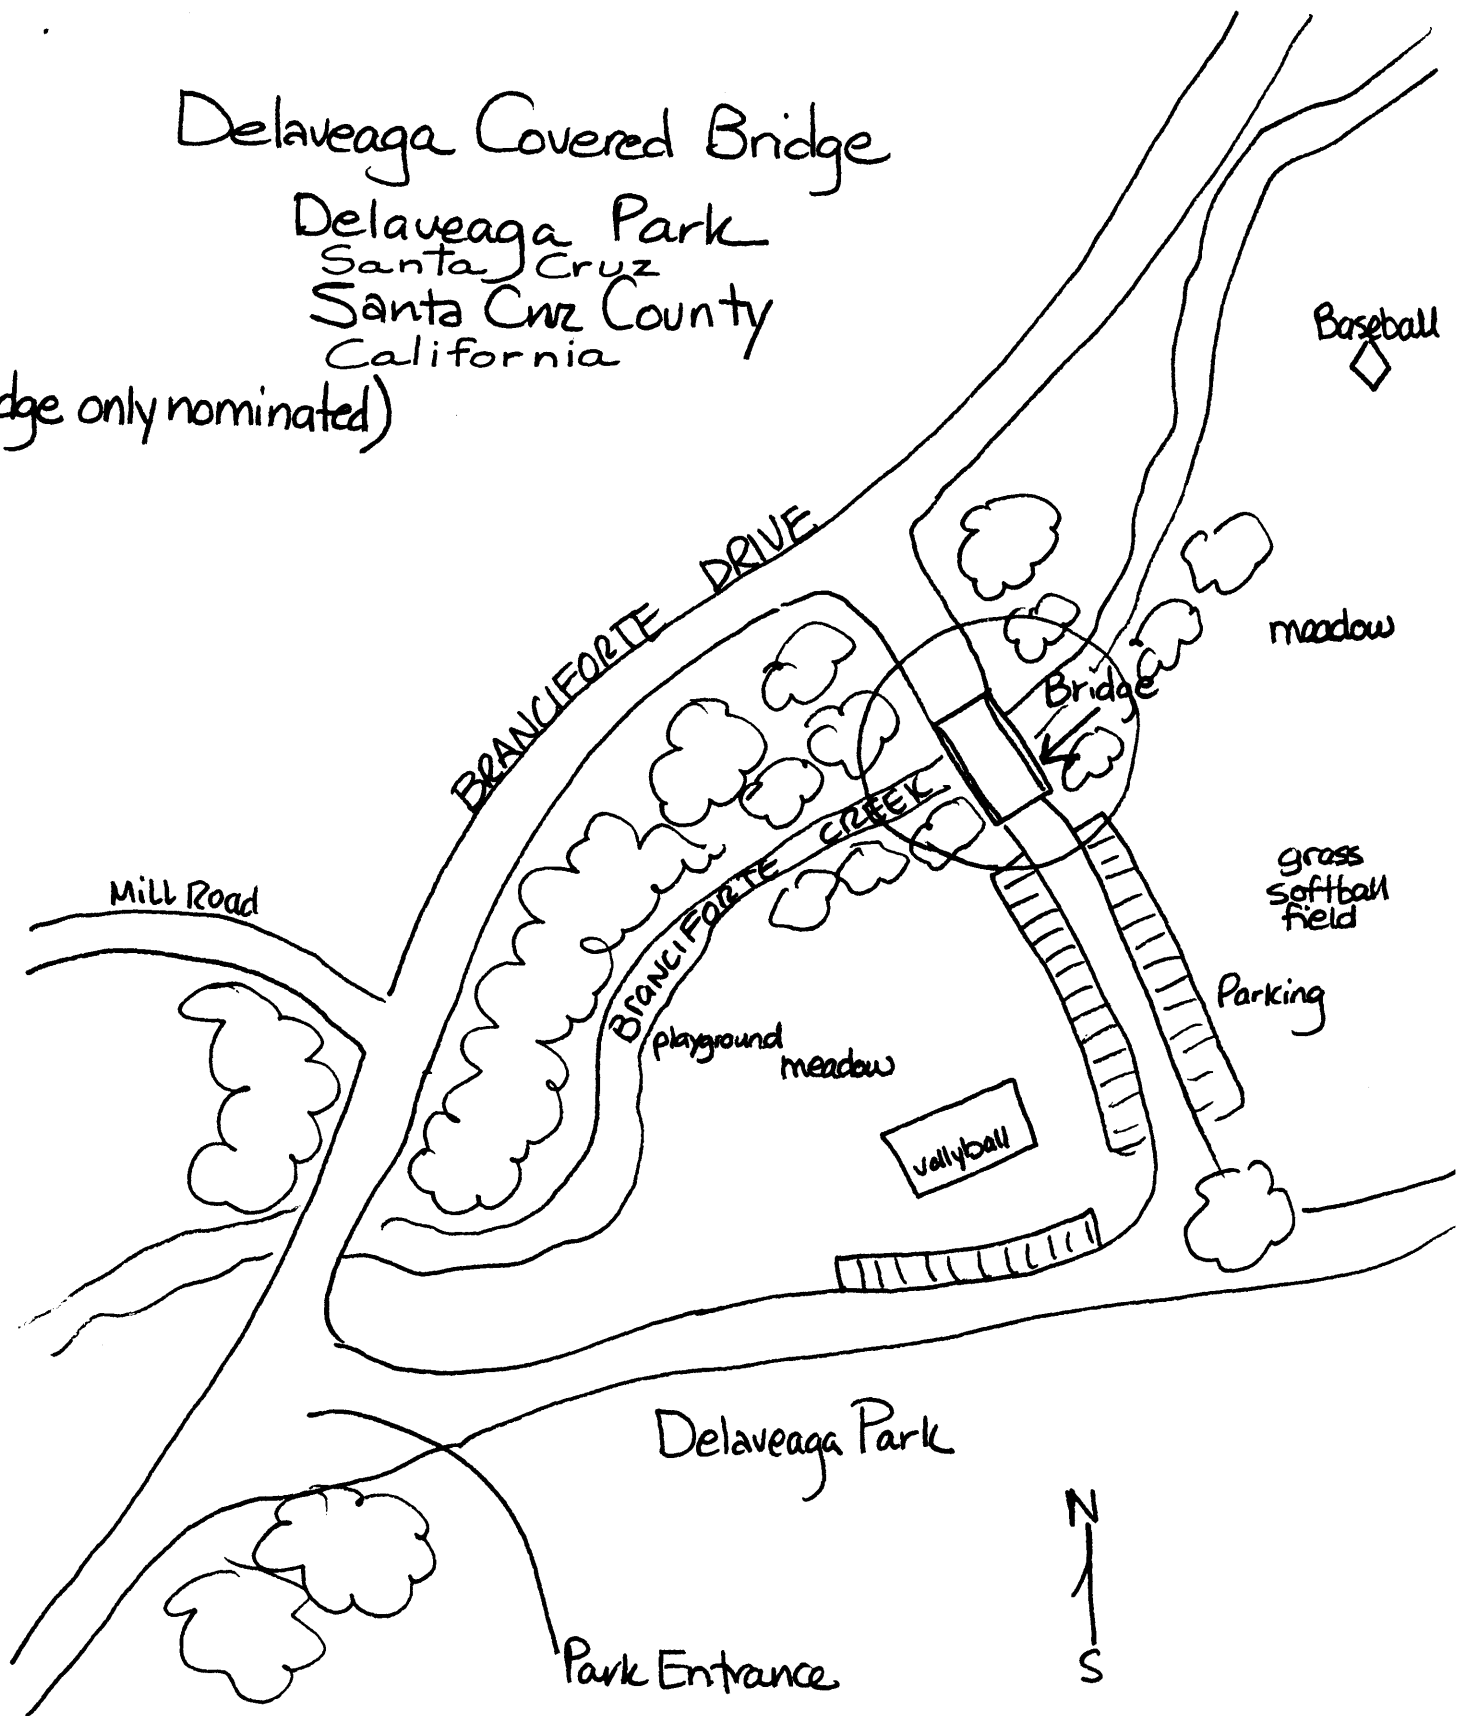 Delaveaga Covered Bridge
Delaveaga Park
Santa Cruz
Santa Cruz County
California
dge only nominated)
Baseball
BRANCIFORTE DRIVE
meadow
Bridge
BRANCIFORTE CREEK
grass
softball
field
Mill Road
Parking
playground
meadow
vollyball
Delaveaga Park
N
S
Park Entrance